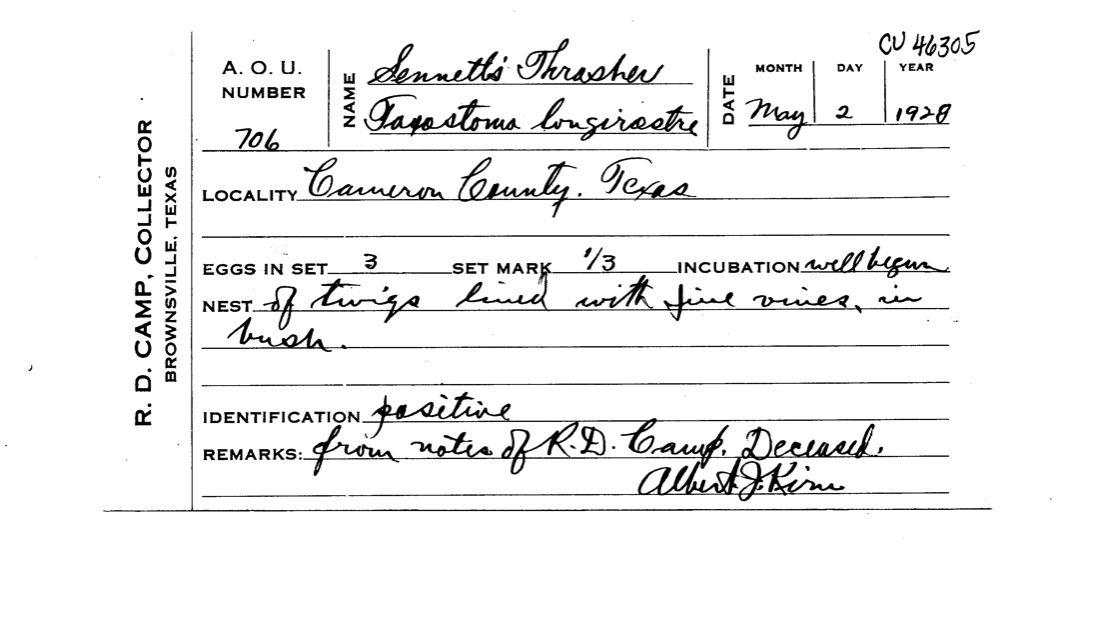 CU 46305
A. O. U. NUMBER 706
NAME Sennett's Thrasher
Toxostoma longirostre
DATE MONTH May DAY 2 YEAR 1928
R. D. CAMP, COLLECTOR
BROWNSVILLE, TEXAS
LOCALITY Cameron County. Texas
EGGS IN SET 3 SET MARK 1/3 INCUBATION well begun
NEST of twigs lined with fine vines, in
bush.
IDENTIFICATION positive
REMARKS: from notes of R.D. Camp. Deceased.
Albert J. Kirn